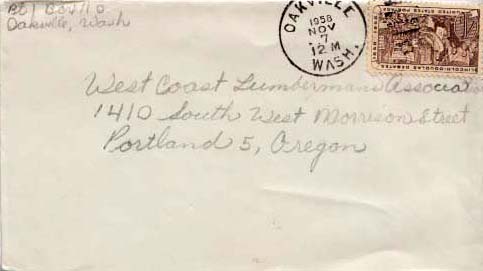 Oakville, Wash
OAKVILLE
1958
NOV
7
12 M
WASH.
LINCOLN-DOUGLAS DEBATES
UNITED STATES POSTAGE
West Coast Lumbermans Associa
1410 South West Morrison Street
Portland 5, Oregon